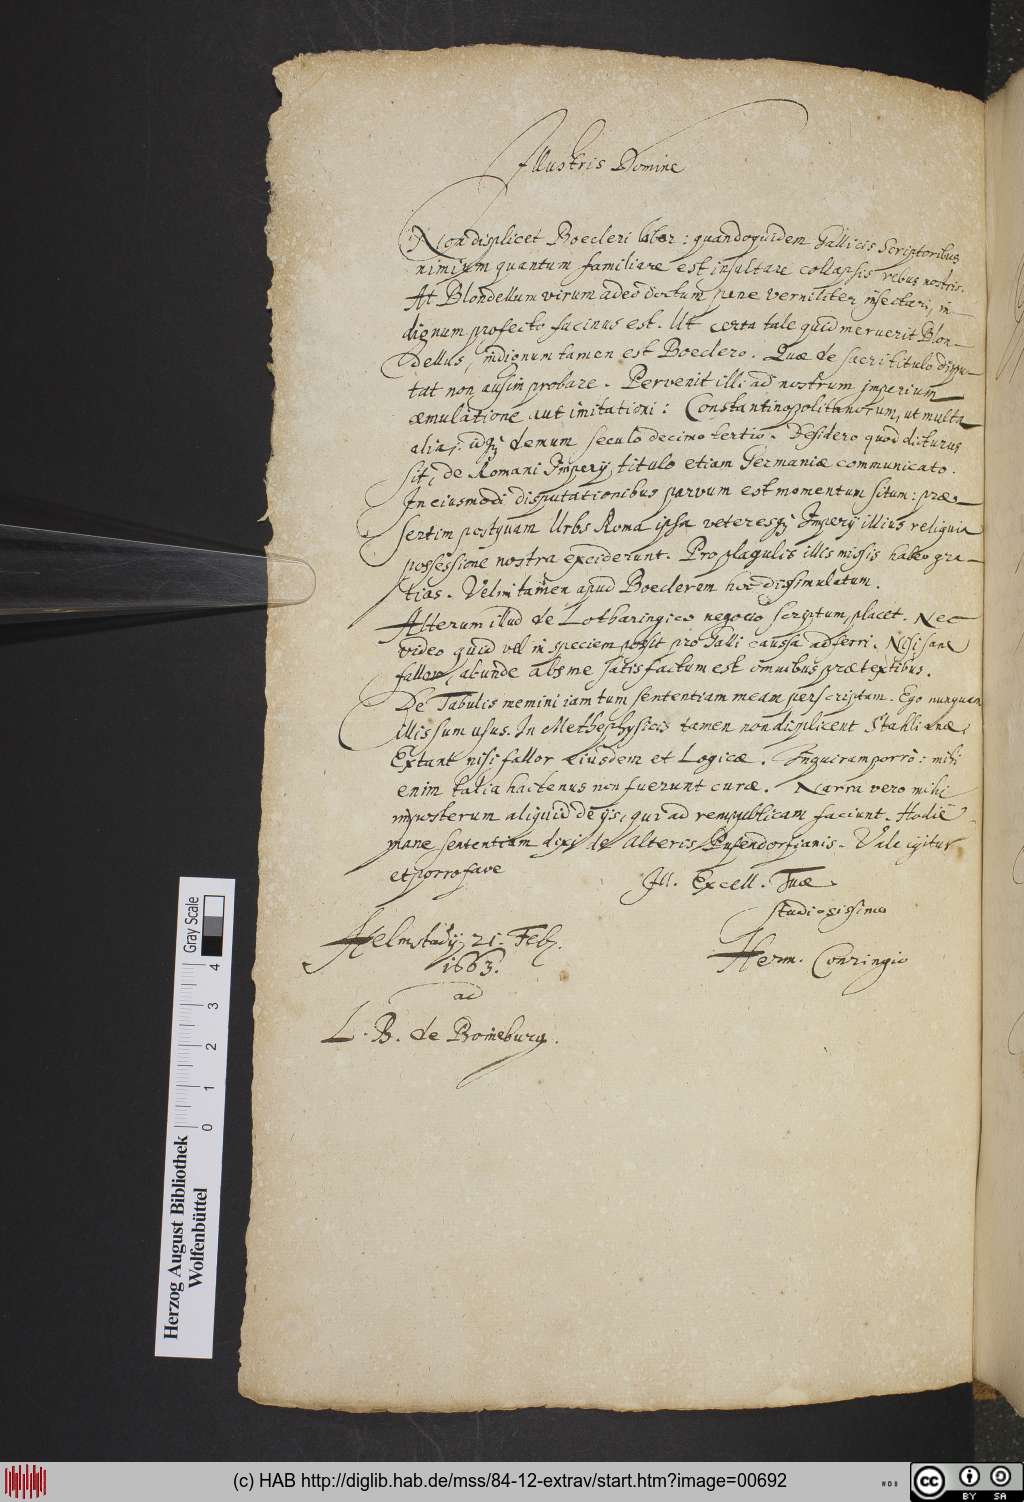 Illustris Domine
Non displicet Boecleri labor: quandoquidem Gallicis Scriptoribus
nimium quantum familiare est insultare collapsis rebus nostris.
At Blondellum virum adeo doctum pene verniliter insectari, in-
dignum profecto facinus est. Ut certa tale quid meruerit Blon-
dellus, indignum tamen est Boeclero. Quæ de sacri titulo dispu-
tat non ausim probare. Pervenit illi ad nostrum imperium
æmulatione aut imitationi: Constantinopolitanorum, ut multa
alia; idq; demum seculo decimo tertio. Desidero quod dicturus
sit, de Romani Impery, titulo etiam Germaniæ communicato.
In eiusmodi disputationibus parvum est momentum situm: præ-
sertim postquam Urbs Roma ipsa veteresq; Impery illius reliquiæ
possessione nostra exciderunt. Pro plagulis illis missis habeo gra-
tias. Velim tamen apud Boeclerem hoc dissimulatum.
Alterum illud de Lotharingico negocio scriptum, placet. Nec
video quid vel in speciem possit pro Galli caussa adferri. Nisi sane
fallor, abunde abs me satisfactum est omnibus prætextibus.
De Tabulis memini iam tum sententiam meam perscriptam. Ego nunquam
illis sum usus. In Methephysicis tamen non displicent Stahlianæ,
Extant nisi fallor eiusdem et Logicæ. Inquiram porrò: mihi
enim talia hactenus non fuerunt curæ. Narra vero mihi
imposterum aliquid de ijs, qui ad rempublicam faciunt. Hodie
mane sententiam dixi de alteris Pufendorfianis. Vale igitur
et porro fave
Ill. Excell. Tuæ
studiosissimo
Helmstady, 21. Feb.
1663.
Herm. Conringio
ad
L. B. de Boineburg.
Herzog August Bibliothek
Wolfenbüttel
Gray Scale
0 1 2 3 4
(c) HAB http://diglib.hab.de/mss/84-12-extrav/start.htm?image=00692
cc BY SA